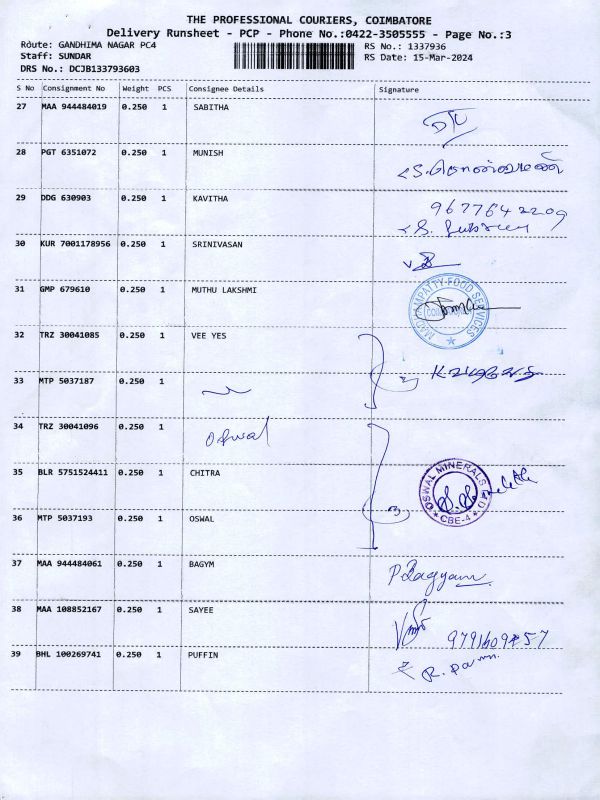 THE PROFESSIONAL COURIERS, COIMBATORE
Delivery Runsheet - PCP - Phone No.:0422-3505555 - Page No.:3
Route: GANDHIMA NAGAR PC4
RS No.: 1337936
Staff: SUNDAR
RS Date: 15-Mar-2024
DRS No.: DCJB133793603
S No Consignment No Weight PCS Consignee Details Signature
27 MAA 944484019 0.250 1 SABITHA
28 PGT 6351072 0.250 1 MUNISH
29 DDG 630903 0.250 1 KAVITHA
9677642209
30 KUR 7001178956 0.250 1 SRINIVASAN
31 GMP 679610 0.250 1 MUTHU LAKSHMI
MADHAMPATTY FOOD SERVICES
32 TRZ 30041085 0.250 1 VEE YES
33 MTP 5037187 0.250 1
34 TRZ 30041096 0.250 1 Oswal
35 BLR 5751524411 0.250 1 CHITRA
OSWAL MINERALS LTD
CBE-4
36 MTP 5037193 0.250 1 OSWAL
3
37 MAA 944484061 0.250 1 BAGYM
P.Bagyam
38 MAA 108852167 0.250 1 SAYEE
39 BHL 100269741 0.250 1 PUFFIN